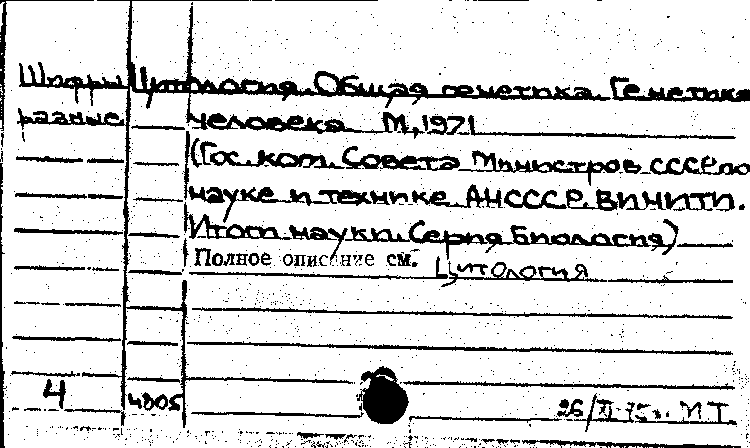 Шифры Цитология. Общая генетика. Генетика
разные человека М., 1971
(Гос. ком. Совета Министров СССР по
науке и технике АН СССР. ВИНИТИ.
Итоги науки. Серия Биология)
Полное описание см. Цитология
4 4805 26/XI-75г. М.Т.